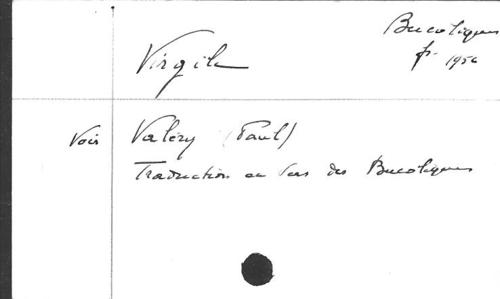 Bucoliques
fr. 1956
Virgile
Voir Valéry (Paul)
Traduction en vers des Bucoliques